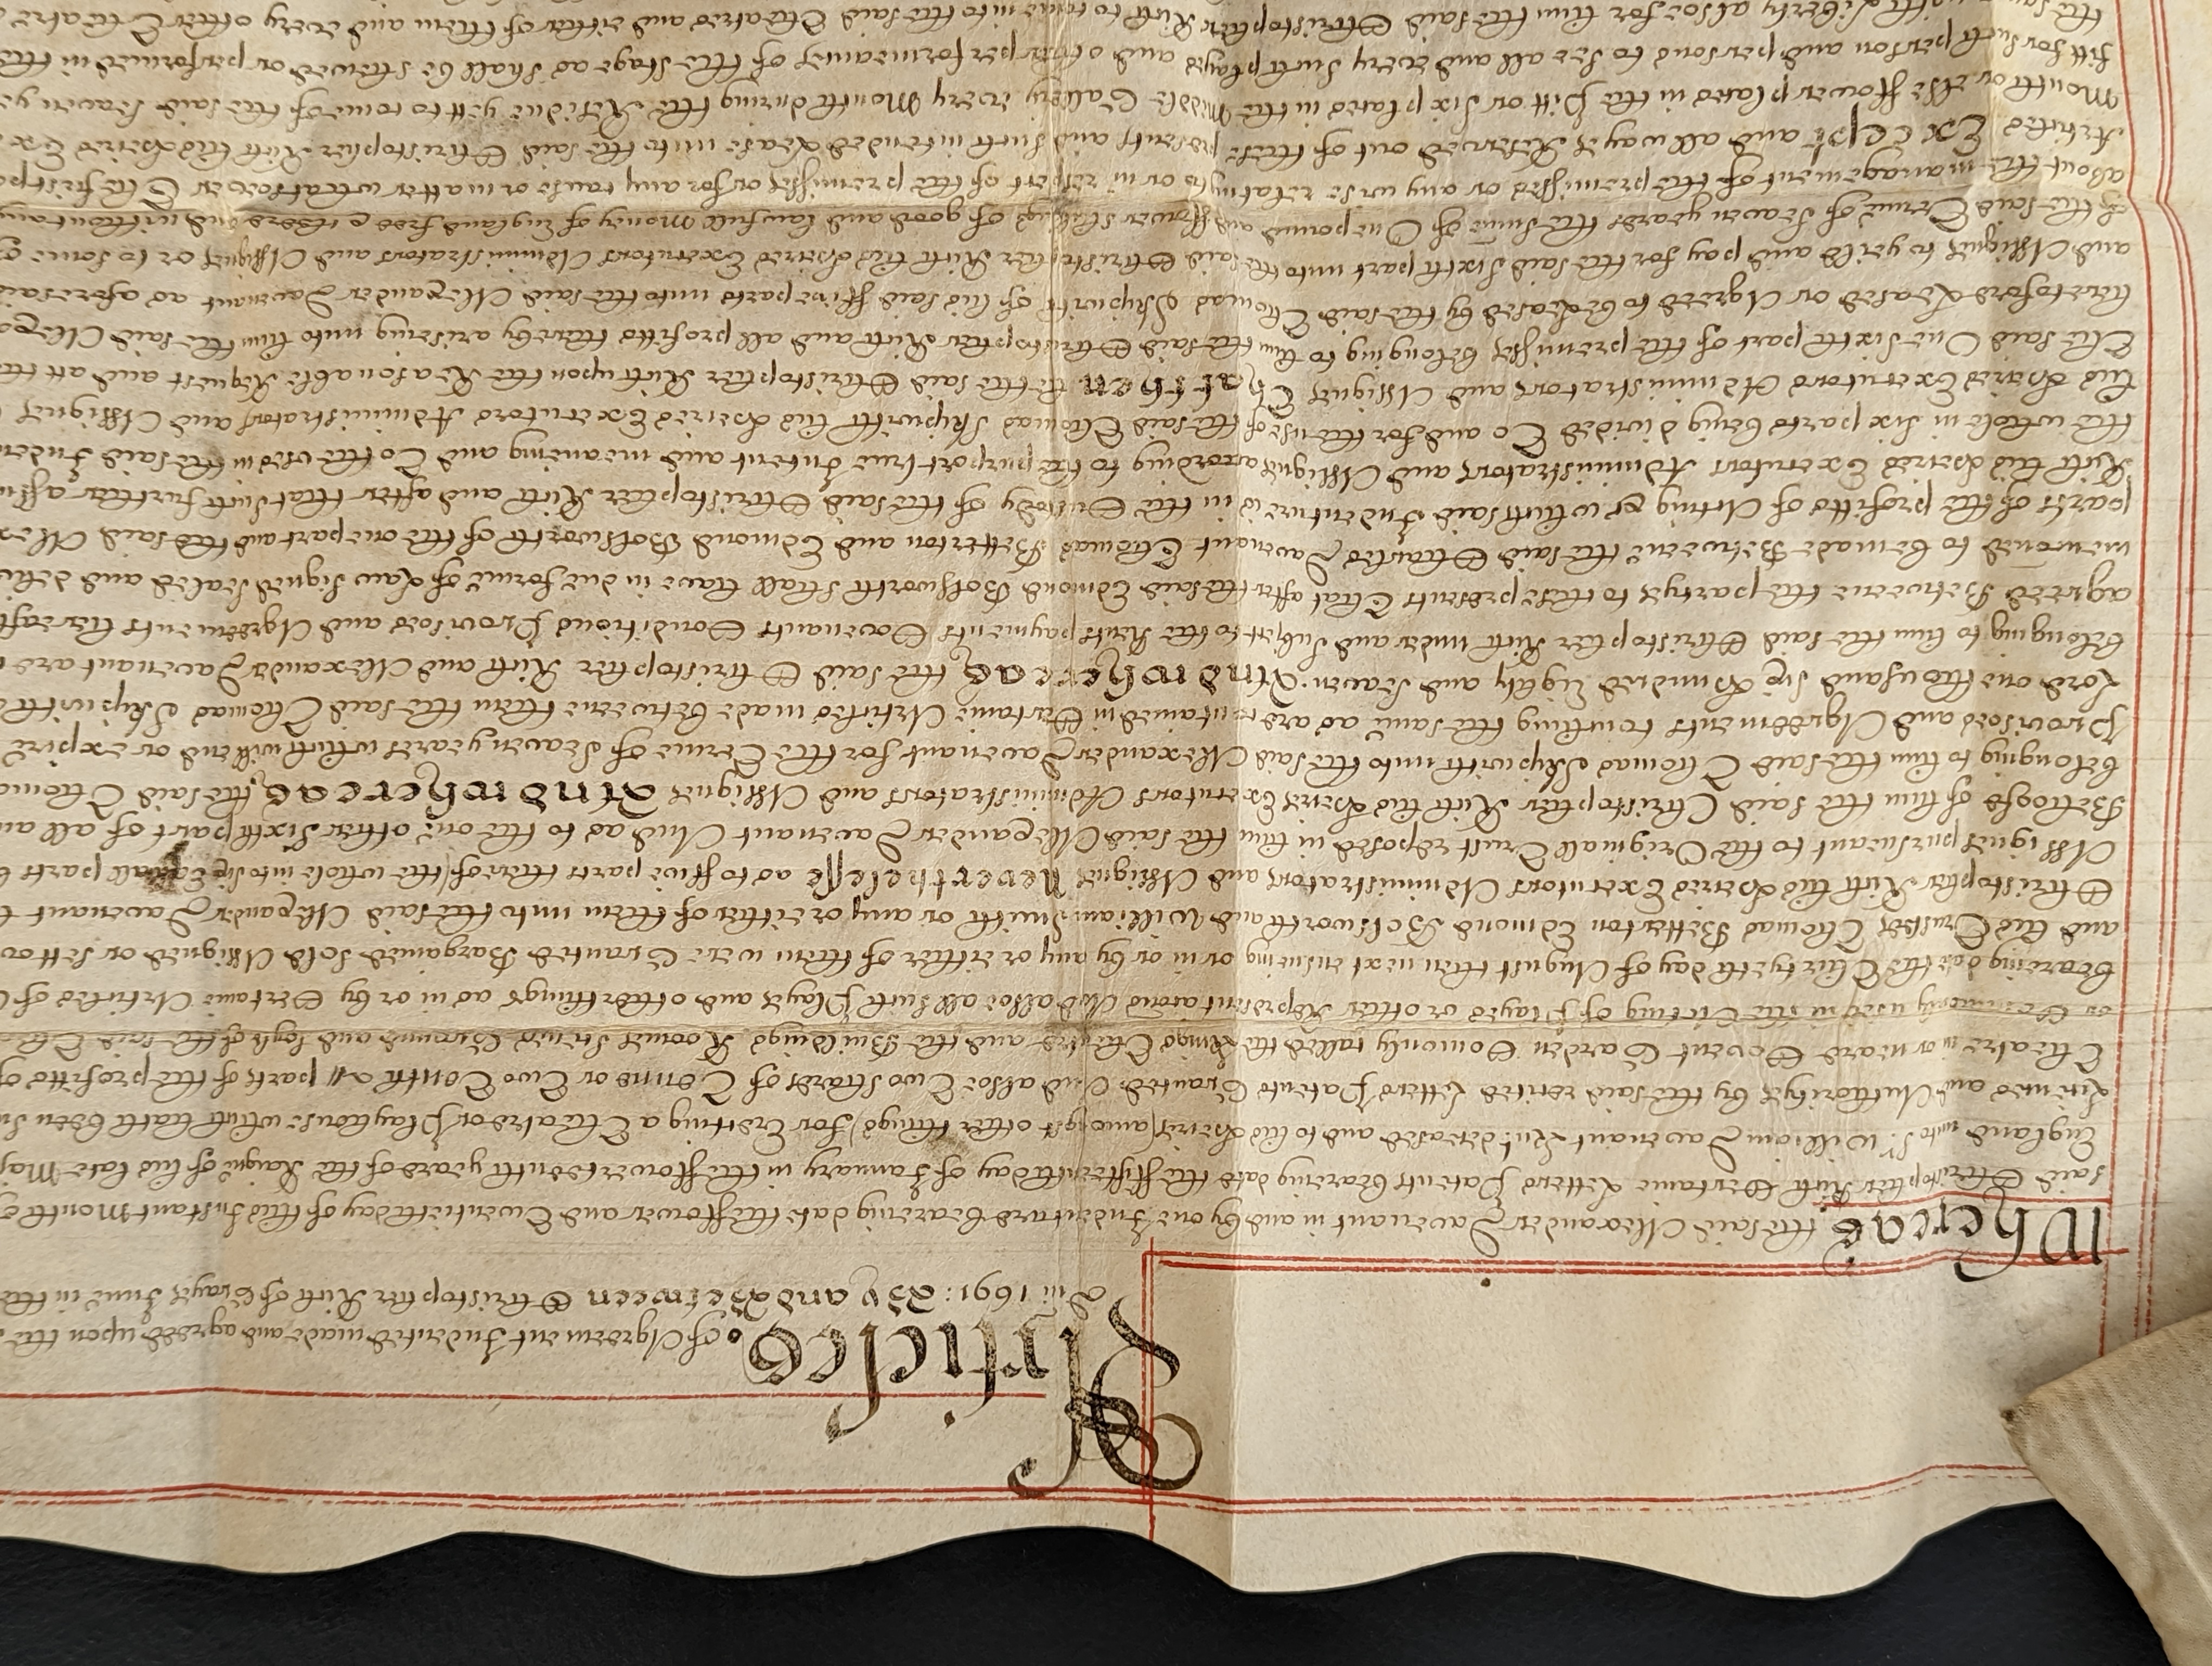 Articles of Agreement Indented made and agreed upon the
Dni 1691: By and Between Christopher Rich of Grayes Inne in the
Whereas the said Alexander Davenant in and by one Indenture bearing date the ffower and Twentieth day of this Instant Month
said Christopher Rich Certaine Letters Patents bearing date the ffifteenth day of January in the ffowerteenth yeare of the Raigne of his late
England unto Sr. William Davenant Knt. deceased and to his Heires (amongst other things) for Erecting a Theatre or Playhouse which hath been
Licences and Authorityes by the said recited Letters Patents Granted. And alsoe Two shares of Tenne or Two Tenth parts of the profitts
Theatre in or neare Covent Garden Comonly called the Kings Theatre and the Buildings Roomes Scenes Ground and Soyle of the said
or Commonly used in the Acting of Playes or other Representations And alsoe all such Playes and other things as in or by Certaine Articles of
beareing date the Thirtyeth day of August then next ensueing or in or by any or either of them were Granted Bargained Sold Assigned or sett over
and his Trustees Thomas Betterton Edmond Bolsworth and William Smith or any or either of them unto the said Alexander Davenant
Christopher Rich his Heires Executors Administrators and Assignes Neverthelesse as to ffive parts thereof (the whole into six Equall parts
Assignes pursueant to the Originall Trust reposed in him the said Alexander Davenant And as to the one other Sixth part of all
Behoofe of him the said Christopher Rich his Heires Executors Administrators and Assignes And whereas the said Thomas
belonging to him the said Thomas Skipwith unto the said Alexander Davenant for the Terme of Seaven yeares which will end or expire
Provisoes and Agreements touching the same as are contained in Certaine Articles made betweene them the said Thomas Skipwith
Lord one thousand six Hundred Eighty and Seaven. And whereas the said Christopher Rich and Alexander Davenant are
belonging to him the said Christopher Rich under and Subject to the Rents payments Covenants Conditions Provisoes and Agreements
agreed Betweene the partyes to these presents That after the said Edmond Bolsworth shall have in due forme of Law signed sealed and
menconed to be made Betweene the said Charles Davenant Thomas Betterton and Edmond Bolsworth of the one part and the said
parts of the profitts of Acting &c which said Indenture is in the Custody of the said Christopher Rich and after that such further
Rich his Heires Executors Administrators and Assignes according to the purport true Intent and meaneing and To the uses in the said
the whole in six parts being divided To and for the use of the said Thomas Skipwith his Heires Executors Administrators and Assignes
his Heires Executors Administrators and Assignes That then he the said Christopher Rich upon the Reasonable Request and att the
The said One Sixth part of the premisses belonging to him the said Christopher Rich and all profitts thereby ariseing unto him the said
heretofore Leased or Agreed to be Leased by the said Thomas Skipwith of his said ffive parts unto the said Alexander Davenant as aforesaid
and Assignes to yeild and pay for the said sixth part unto the said Christopher Rich his Heires Executors Administrators and Assignes or to some
of the said Terme of Seaven yeares the sume of One pound and ffower shillings of good and lawfull money of England free and without any
about the management of the premisses or any wise relating to or in respect of the premisses or for any cause or matter whatsoever
Articles Except and allwayes Reserved out of these presents and such intended Lease unto the said Christopher Rich his Heires
Month or else fflower places in the Pitt or six places in the Middle Gallery every Month during the Residue yett to come of the said
such person and persons to see all and every such playes and other performeances of the stage as shall be shewed or performed in the
Liberty alsoe for him the said Christopher Rich to come into the said Theatres and either of them and every other Theatre